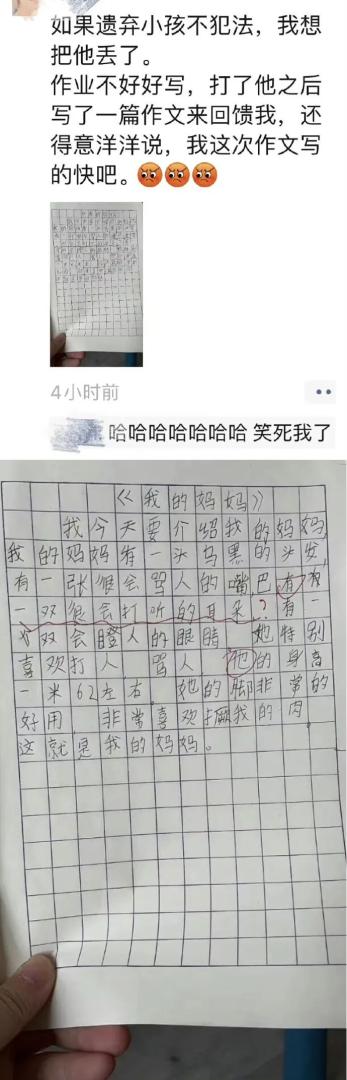 如果遗弃小孩不犯法，我想
把他丢了。
作业不好好写，打了他之后
写了一篇作文来回馈我，还
得意洋洋说，我这次作文写
的快吧。😡😡😡
4小时前
哈哈哈哈哈哈哈 笑死我了
《我的妈妈》
我今天要介绍我的妈妈，
我的妈妈有一头乌黑的头发，
有一张很会骂人的嘴巴有
一双很会打听的耳朵？有一
双会瞪人的眼睛 她特别
喜欢打人，骂人 他的身高
一米62左右，她的脚非常的
好用，非常喜欢我的肉，
这就是我的妈妈。